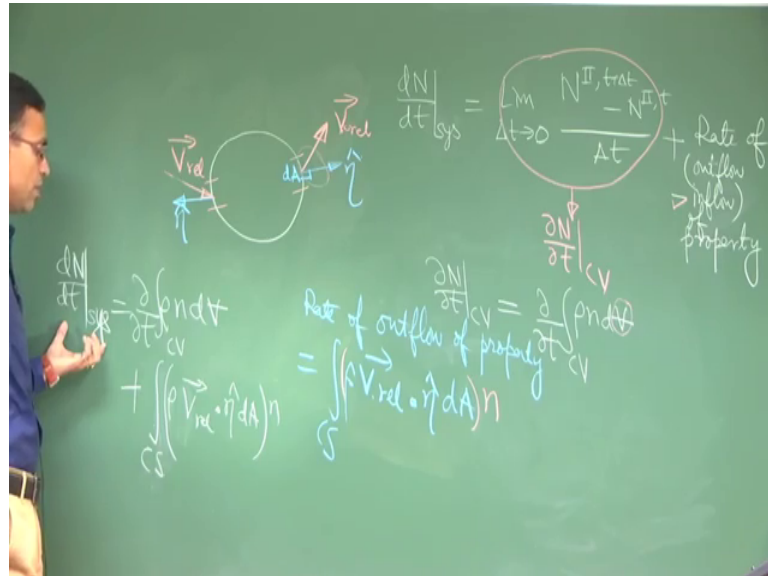 dN/dt|sys = Lim Δt→0 (N^II, t+Δt - N^II t)/Δt + Rate of
(outflow
- inflow)
of
property
∂N/∂t|CV
V⃗rel
V⃗rel
dA
η̂
η̂
dN/dt|sys = ∂/∂t ∫CV ρndV
+ ∫CS (ρV⃗rel · η̂ dA)n
∂N/∂t|CV = ∂/∂t ∫CV ρndV
Rate of outflow of property
= ∫CS (ρV⃗rel · η̂ dA)n